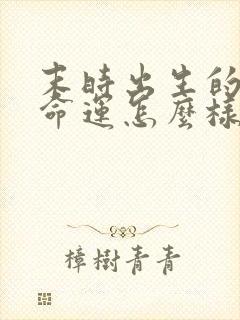 未時出生的
命運怎麼樣
樟樹青青